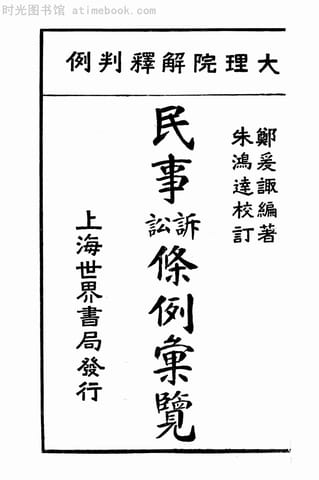 时光图书馆 atimebook.com
大理院解釋判例
鄭爰諏編著
朱鴻達校訂
民事訴訟條例彙覽
上海世界書局發行